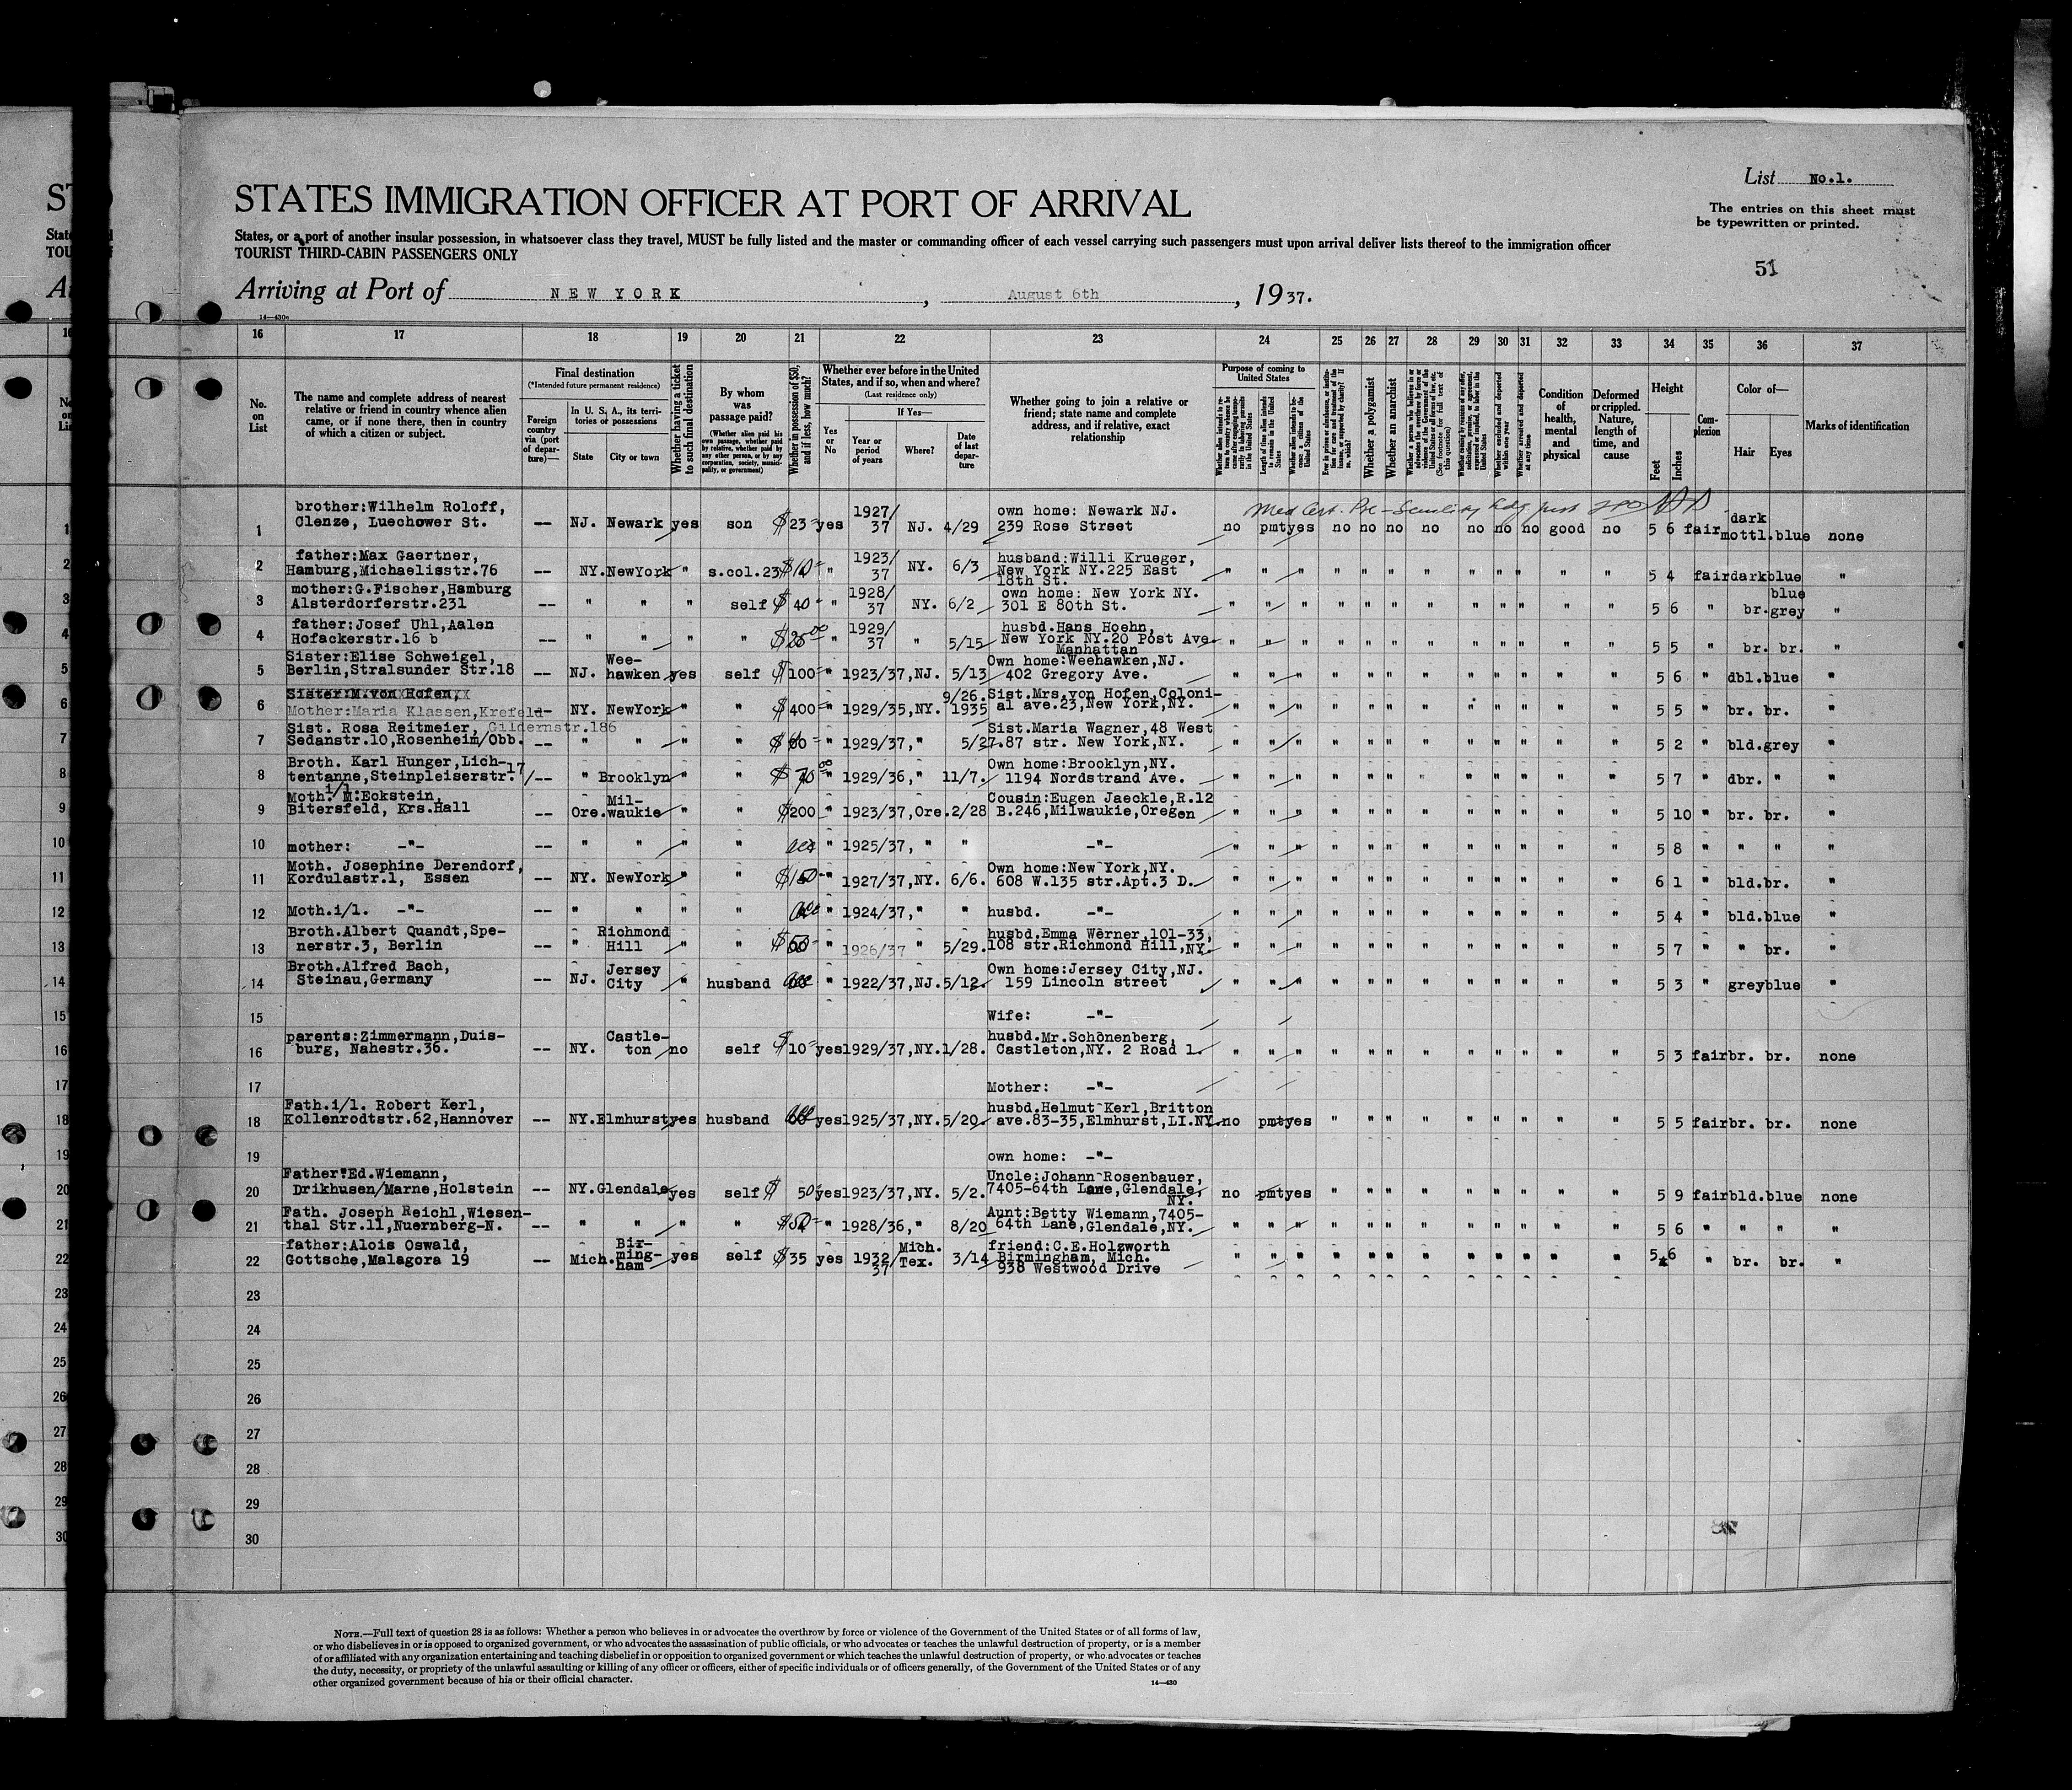 List No.1.
STATES IMMIGRATION OFFICER AT PORT OF ARRIVAL
The entries on this sheet must
be typewritten or printed.
States, or a port of another insular possession, in whatsoever class they travel, MUST be fully listed and the master or commanding officer of each vessel carrying such passengers must upon arrival deliver lists thereof to the immigration officer
TOURIST THIRD-CABIN PASSENGERS ONLY
51
Arriving at Port of NEW YORK, August 6th, 1937.
14—430
16 17 18 19 20 21 22 23 24 25 26 27 28 29 30 31 32 33 34 35 36 37
No. on List
The name and complete address of nearest
relative or friend in country whence alien
came, or if none there, then in country
of which a citizen or subject.
Final destination
(*Intended future permanent residence)
Foreign country via (port of departure)—
In U. S. A., its territories or possessions
State
City or town
Whether having a ticket to such final destination
By whom was passage paid?
(Whether alien paid his own passage, whether paid by relative, whether paid by any other person, or by any corporation, society, municipality, or government)
Whether in possession of $50, and if less, how much?
Whether ever before in the United States, and if so, when and where?
(Last residence only)
Yes or No
If Yes—
Year or period of years
Where?
Date of last departure
Whether going to join a relative or
friend; state name and complete
address, and if relative, exact
relationship
Purpose of coming to United States
Whether a polygamist
Whether an anarchist
Whether arrested and deported at any time
Condition of health, mental and physical
Deformed or crippled. Nature, length of time, and cause
Height
Feet
Inches
Complexion
Color of—
Hair
Eyes
Marks of identification
1 brother:Wilhelm Roloff,
Clenze, Luechower St. -- NJ. Newark yes son $23 yes 1927/37 NJ. 4/29 own home: Newark NJ.
239 Rose Street no pmt yes no no no no no no no good no 5 6 fair dark mottl. blue none
2 father:Max Gaertner,
Hamburg,Michaelisstr.76 -- NY. NewYork " s.col.23 $10 " 1923/37 NY. 6/3 husband:Willi Krueger,
New York NY.225 East
18th St. " " " " " " " " " " " " " 5 4 fair dark blue "
3 mother:G.Fischer,Hamburg
Alsterdorferstr.231 -- " " " self $40 " 1928/37 NY. 6/2 own home: New York NY.
301 E 80th St. " " " " " " " " " " " " 5 6 " br. blue grey "
4 father:Josef Uhl,Aalen
Hofackerstr.16 b -- " " " " " 1929/37 " 5/15 husbd.Hans Hoehn,
New York NY.20 Post Ave
Manhattan " " " " " " " " " " " " 5 5 " br. br. "
5 Sister:Elise Schweigel,
Berlin,Stralsunder Str.18 -- NJ. Weehawken yes self $100 " 1923/37,NJ. 5/13 Own home:Weehawken,NJ.
402 Gregory Ave. " " " " " " " " " " " " 5 6 " dbl. blue "
6 Sister:M.von Hofen,
Mother:Maria Klassen,Krefeld- Gildernstr.186
-- NY. NewYork " " $400 " 1929/35,NY. 9/26. 1935 Sist.Mrs.von Hofen,Coloni-
al ave.23,New York,NY. " " " " " " " " " " " " 5 5 " br. br. "
7 Sist. Rosa Reitmeier,
Sedanstr.10,Rosenheim/Obb. -- " " " " $60 " 1929/37," 5/27. Sist.Maria Wagner,48 West
87 str. New York,NY. " " " " " " " " " " " " 5 2 " bld. grey "
8 Broth. Karl Hunger,Lich-
tentanne,Steinpleiserstr.17/ -- " Brooklyn " " $70 " 1929/36," 11/7. Own home:Brooklyn,NY.
1194 Nordstrand Ave. " " " " " " " " " " " " 5 7 " dbr. " "
9 Moth.i/l. M:Eckstein,
Bitersfeld, Krs.Hall -- Ore. Milwaukie " " $200 " 1923/37,Ore. 2/28 Cousin:Eugen Jaeckle,R.12
B.246,Milwaukie,Oregen " " " " " " " " " " " " 5 10 " br. br. "
10 mother: -"- -- " " " " " 1925/37, " " -"- " " " " " " " " " " " " 5 8 " " " "
11 Moth. Josephine Derendorf,
Kordulastr.1, Essen -- NY. NewYork " " $150 " 1927/37,NY. 6/6. Own home:New York,NY.
608 W.135 str.Apt.3 D. " " " " " " " " " " " " 6 1 " bld. br. "
12 Moth.i/l. -"- -- " " " " " 1924/37," " husbd. -"- " " " " " " " " " " " " 5 4 " bld. blue "
13 Broth.Albert Quandt,Spe-
nerstr.3, Berlin -- " Richmond Hill " " " 1926/37 " 5/29. husbd.Emma Werner,101-33,
108 str.Richmond Hill,NY. " " " " " " " " " " " " 5 7 " " br. "
14 Broth.Alfred Bach,
Steinau,Germany -- NJ. Jersey City " husband " 1922/37,NJ. 5/12. Own home:Jersey City,NJ.
159 Lincoln street " " " " " " " " " " " " 5 3 " grey blue "
15 Wife: -"-
16 parents:Zimmermann,Duis-
burg, Nahestr.36. -- NY. Castleton no self $10 yes 1929/37,NY. 1/28. husbd.Mr.Schönenberg,
Castleton,NY. 2 Road 1. " " " " " " " " " " " " 5 3 fair br. br. none
17 Mother: -"-
18 Fath.i/l. Robert Kerl,
Kollenrodtstr.62,Hannover -- NY. Elmhurst yes husband yes 1925/37,NY. 5/20. husbd.Helmut Kerl,Britton
ave.83-35,Elmhurst,LI.NY. no pmt yes " " " " " " " " " 5 5 fair br. br. none
19 own home: -"-
20 Father:Ed.Wiemann,
Drikhusen/Marne,Holstein -- NY. Glendale yes self $50 yes 1923/37,NY. 5/2. Uncle:Johann Rosenbauer,
7405-64th Lane,Glendale,
NY. no pmt yes " " " " " " " " " 5 9 fair bld. blue none
21 Fath. Joseph Reichl,Wiesen-
thal Str.11,Nuernberg-N. -- " " " " $50 " 1928/36," 8/20 Aunt:Betty Wiemann,7405-
64th Lane,Glendale,NY. " " " " " " " " " " " " 5 6 " " " "
22 father:Alois Oswald,
Gottsche,Malagora 19 -- Mich. Birmingham yes self $35 yes 1932/37 Mich. Tex. 3/14 friend:C.E.Holzworth
Birmingham, Mich.
938 Westwood Drive " " " " " " " " " " " " 5 6 " br. br. "
23
24
25
26
27
28
29
30
NOTE.—Full text of question 28 is as follows: Whether a person who believes in or advocates the overthrow by force or violence of the Government of the United States or of all forms of law,
or who disbelieves in or is opposed to organized government, or who advocates the assassination of public officials, or who advocates or teaches the unlawful destruction of property, or is a member
of or affiliated with any organization entertaining and teaching disbelief in or opposition to organized government or which teaches the unlawful destruction of property, or who advocates or teaches
the duty, necessity, or propriety of the unlawful assaulting or killing of any officer or officers, either of specific individuals or of officers generally, of the Government of the United States or of any
other organized government because of his or their official character.
14—430